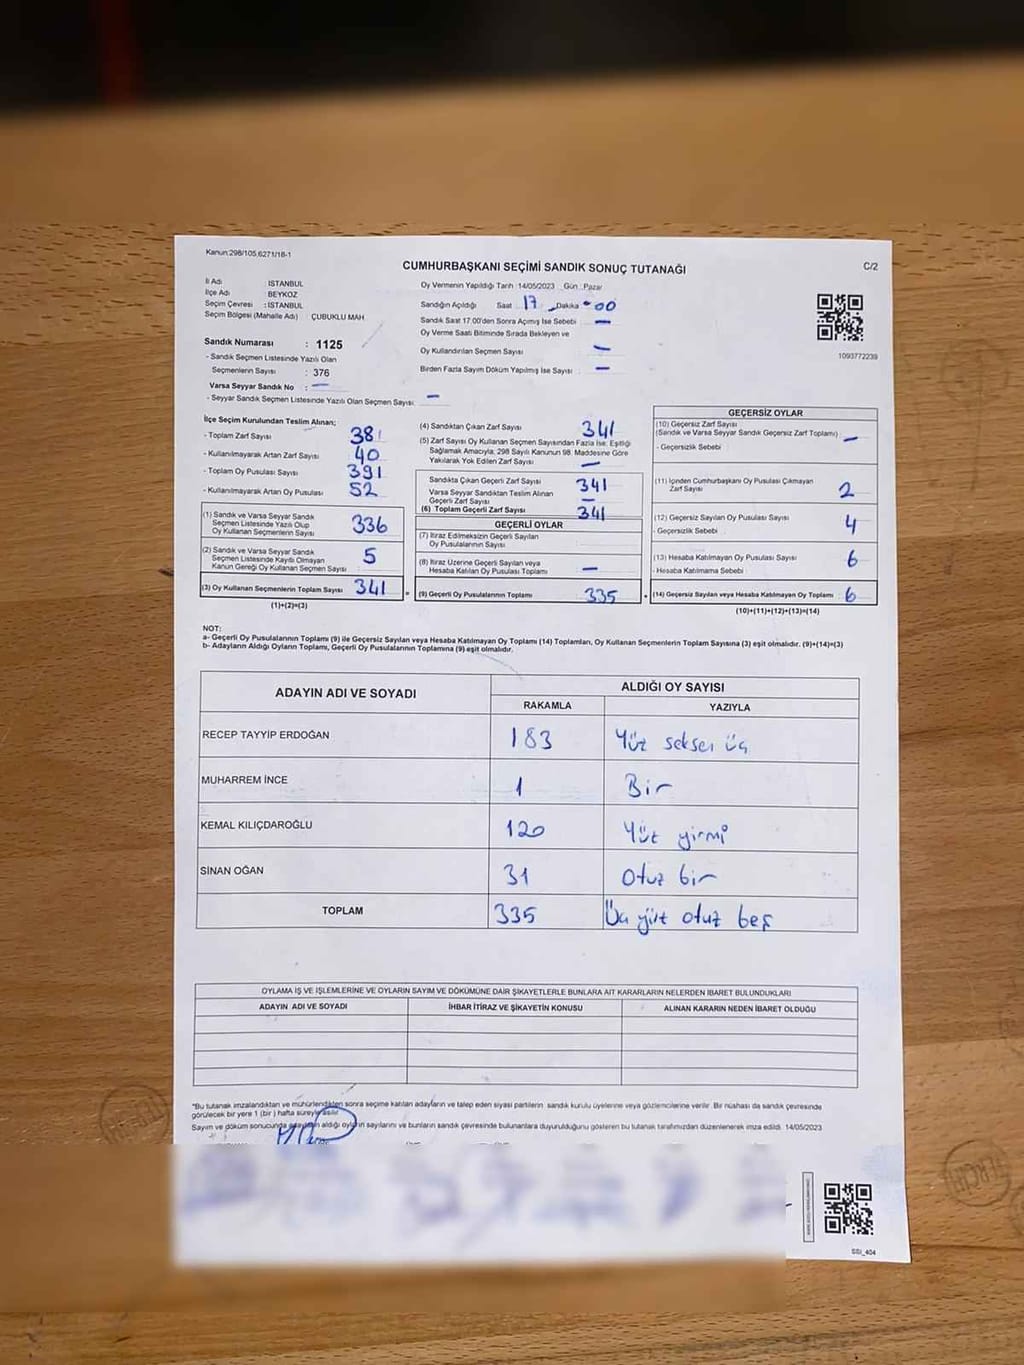 Kanun:298/105,6271/18-1
CUMHURBAŞKANI SEÇİMİ SANDIK SONUÇ TUTANAĞI
C/2
İl Adı : İSTANBUL
İlçe Adı : BEYKOZ
Seçim Çevresi : İSTANBUL
Seçim Bölgesi (Mahalle Adı) ÇUBUKLU MAH.
Oy Vermenin Yapıldığı Tarih :14/05/2023 Gün : Pazar
Sandığın Açıldığı Saat 17 Dakika 00
Sandık Saat 17:00'den Sonra Açımış İse Sebebi —
Oy Verme Saati Bitiminde Sırada Bekleyen ve
Oy Kullandırılan Seçmen Sayısı —
Birden Fazla Sayım Döküm Yapılmış İse Sayısı : —
1093772239
Sandık Numarası : 1125
- Sandık Seçmen Listesinde Yazılı Olan
Seçmenlerin Sayısı : 376
Varsa Seyyar Sandık No : —
- Seyyar Sandık Seçmen Listesinde Yazılı Olan Seçmen Sayısı: —
İlçe Seçim Kurulundan Teslim Alınan;
- Toplam Zarf Sayısı 381
- Kullanılmayarak Artan Zarf Sayısı 40
- Toplam Oy Pusulası Sayısı 391
- Kullanılmayarak Artan Oy Pusulası 52
(1) Sandık ve Varsa Seyyar Sandık
Seçmen Listesinde Yazılı Olup
Oy Kullanan Seçmenlerin Sayısı 336
(2) Sandık ve Varsa Seyyar Sandık
Seçmen Listesinde Kayıtlı Olmayan
Kanun Gereği Oy Kullanan Seçmen Sayısı 5
(3) Oy Kullanan Seçmenlerin Toplam Sayısı 341
(1)+(2)=(3)
(4) Sandıktan Çıkan Zarf Sayısı 341
(5) Zarf Sayısı Oy Kullanan Seçmen Sayısından Fazla İse; Eşitliği
Sağlamak Amacıyla, 298 Sayılı Kanunun 98. Maddesine Göre
Yakılarak Yok Edilen Zarf Sayısı —
Sandıkta Çıkan Geçerli Zarf Sayısı 341
Varsa Seyyar Sandıktan Teslim Alınan
Geçerli Zarf Sayısı —
(6) Toplam Geçerli Zarf Sayısı 341
GEÇERLİ OYLAR
(7) İtiraz Edilmeksizin Geçerli Sayılan
Oy Pusulalarının Sayısı
(8) İtiraz Üzerine Geçerli Sayılan veya
Hesaba Katılan Oy Pusulası Toplamı —
= (9) Geçerli Oy Pusulalarının Toplamı 335
GEÇERSİZ OYLAR
(10) Geçersiz Zarf Sayısı
(Sandık ve Varsa Seyyar Sandık Geçersiz Zarf Toplamı) —
- Geçersizlik Sebebi
(11) İçinden Cumhurbaşkanı Oy Pusulası Çıkmayan
Zarf Sayısı 2
(12) Geçersiz Sayılan Oy Pusulası Sayısı 4
- Geçersizlik Sebebi
(13) Hesaba Katılmayan Oy Pusulası Sayısı 6
- Hesaba Katılmama Sebebi
+ (14) Geçersiz Sayılan veya Hesaba Katılmayan Oy Toplamı 6
(10)+(11)+(12)+(13)=(14)
NOT:
a- Geçerli Oy Pusulalarının Toplamı (9) ile Geçersiz Sayılan veya Hesaba Katılmayan Oy Toplamı (14) Toplamları, Oy Kullanan Seçmenlerin Toplam Sayısına (3) eşit olmalıdır. (9)+(14)=(3)
b- Adayların Aldığı Oyların Toplamı, Geçerli Oy Pusulalarının Toplamına (9) eşit olmalıdır.
ADAYIN ADI VE SOYADI
ALDIĞI OY SAYISI
RAKAMLA YAZIYLA
RECEP TAYYİP ERDOĞAN 183 Yüz seksen üç
MUHARREM İNCE 1 Bir
KEMAL KILIÇDAROĞLU 120 Yüz yirmi
SİNAN OĞAN 31 Otuz bir
TOPLAM 335 Üç yüz otuz beş
OYLAMA İŞ VE İŞLEMLERİNE VE OYLARIN SAYIM VE DÖKÜMÜNE DAİR ŞİKAYETLERLE BUNLARA AİT KARARLARIN NELERDEN İBARET BULUNDUKLARI
ADAYIN ADI VE SOYADI İHBAR İTİRAZ VE ŞİKAYETİN KONUSU ALINAN KARARIN NEDEN İBARET OLDUĞU
*Bu tutanak imzalandıktan ve mühürlendikten sonra seçime katılan adayların ve talep eden siyasi partilerin sandık kurulu üyelerine veya gözlemcilerine verilir. Bir nüshası da sandık çevresinde
görülecek bir yere 1 (bir) hafta süreyle asılır.
Sayım ve döküm sonucunda adayların aldığı oyların sayılarını ve bunların sandık çevresinde bulunanlara duyurulduğunu gösteren bu tutanak tarafımızdan düzenlenerek imza edildi. 14/05/2023
SSI_404